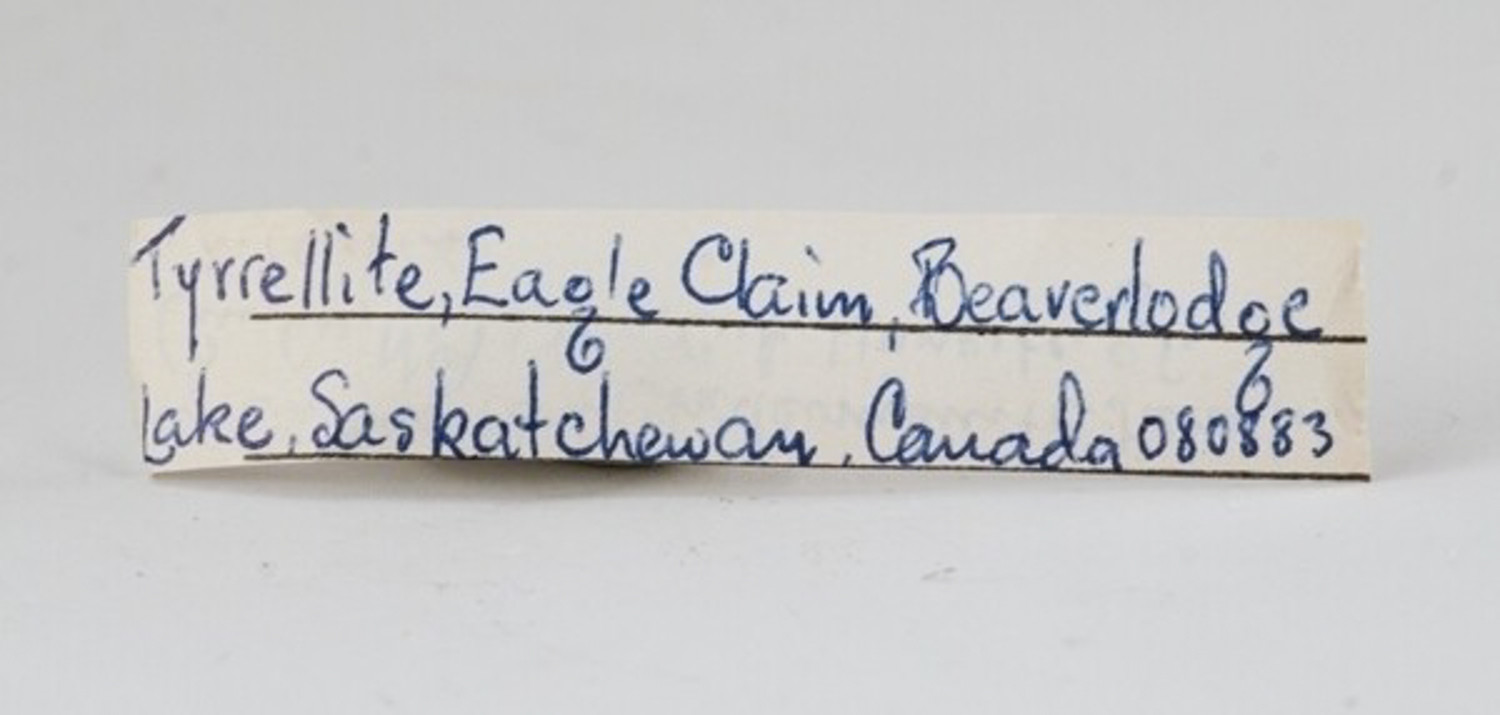 Tyrrellite, Eagle Claim, Beaverlodge
Lake, Saskatchewan, Canada 080883